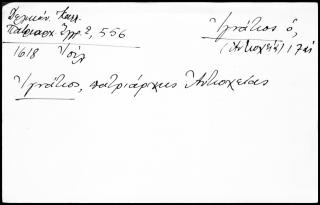 Δελικάν. Κατλ.
Πατριαρχ. Ἐγγρ. 2, 556
1618 Ἰούλ
Ἰγνάτιος ὁ,
(Ἀντιοχείας) 17 αἰ
Ἰγνάτιος, πατριάρχης Ἀντιοχείας